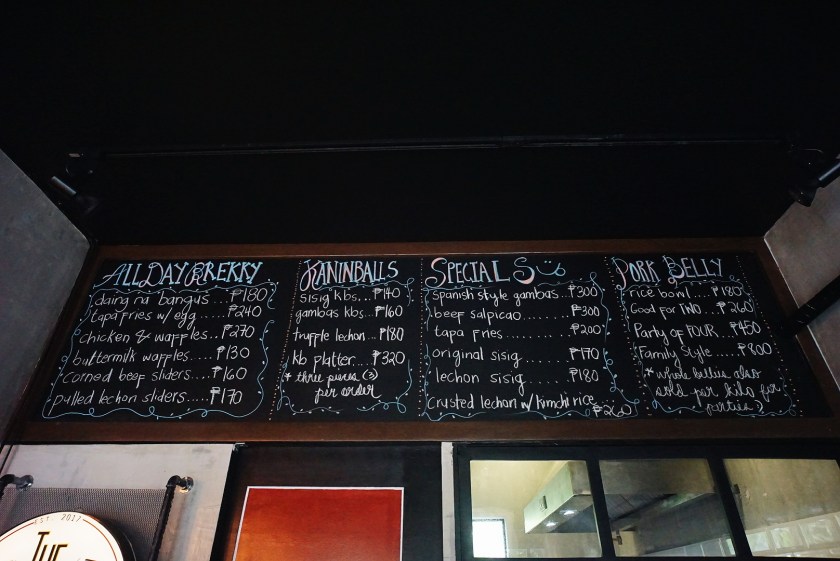 ALL DAY BREKKY
daing na bangus ... ₱180
tapa fries w/ egg ..... ₱240
chicken & waffles .... ₱270
buttermilk waffles ..... ₱130
corned beef sliders .... ₱160
pulled lechon sliders ..... ₱170
KANINBALLS
sisig kbs .... ₱140
gambas kbs .... ₱160
truffle lechon .. ₱180
kb platter .... ₱320
* three pieces (3)
per order
SPECIALS
spanish style gambas ... ₱300
beef salpicao ........ ₱300
tapa fries .......... ₱200
original sisig ....... ₱170
lechon sisig ....... ₱180
crusted lechon w/ kimchi rice ...
₱260
PORK BELLY
rice bowl .... ₱180
Good for TWO .. ₱260
Party of FOUR .. ₱450
Family Style ... ₱800
* whole bellies also
sold per kilo for
parties :)
EST. 2017
THE